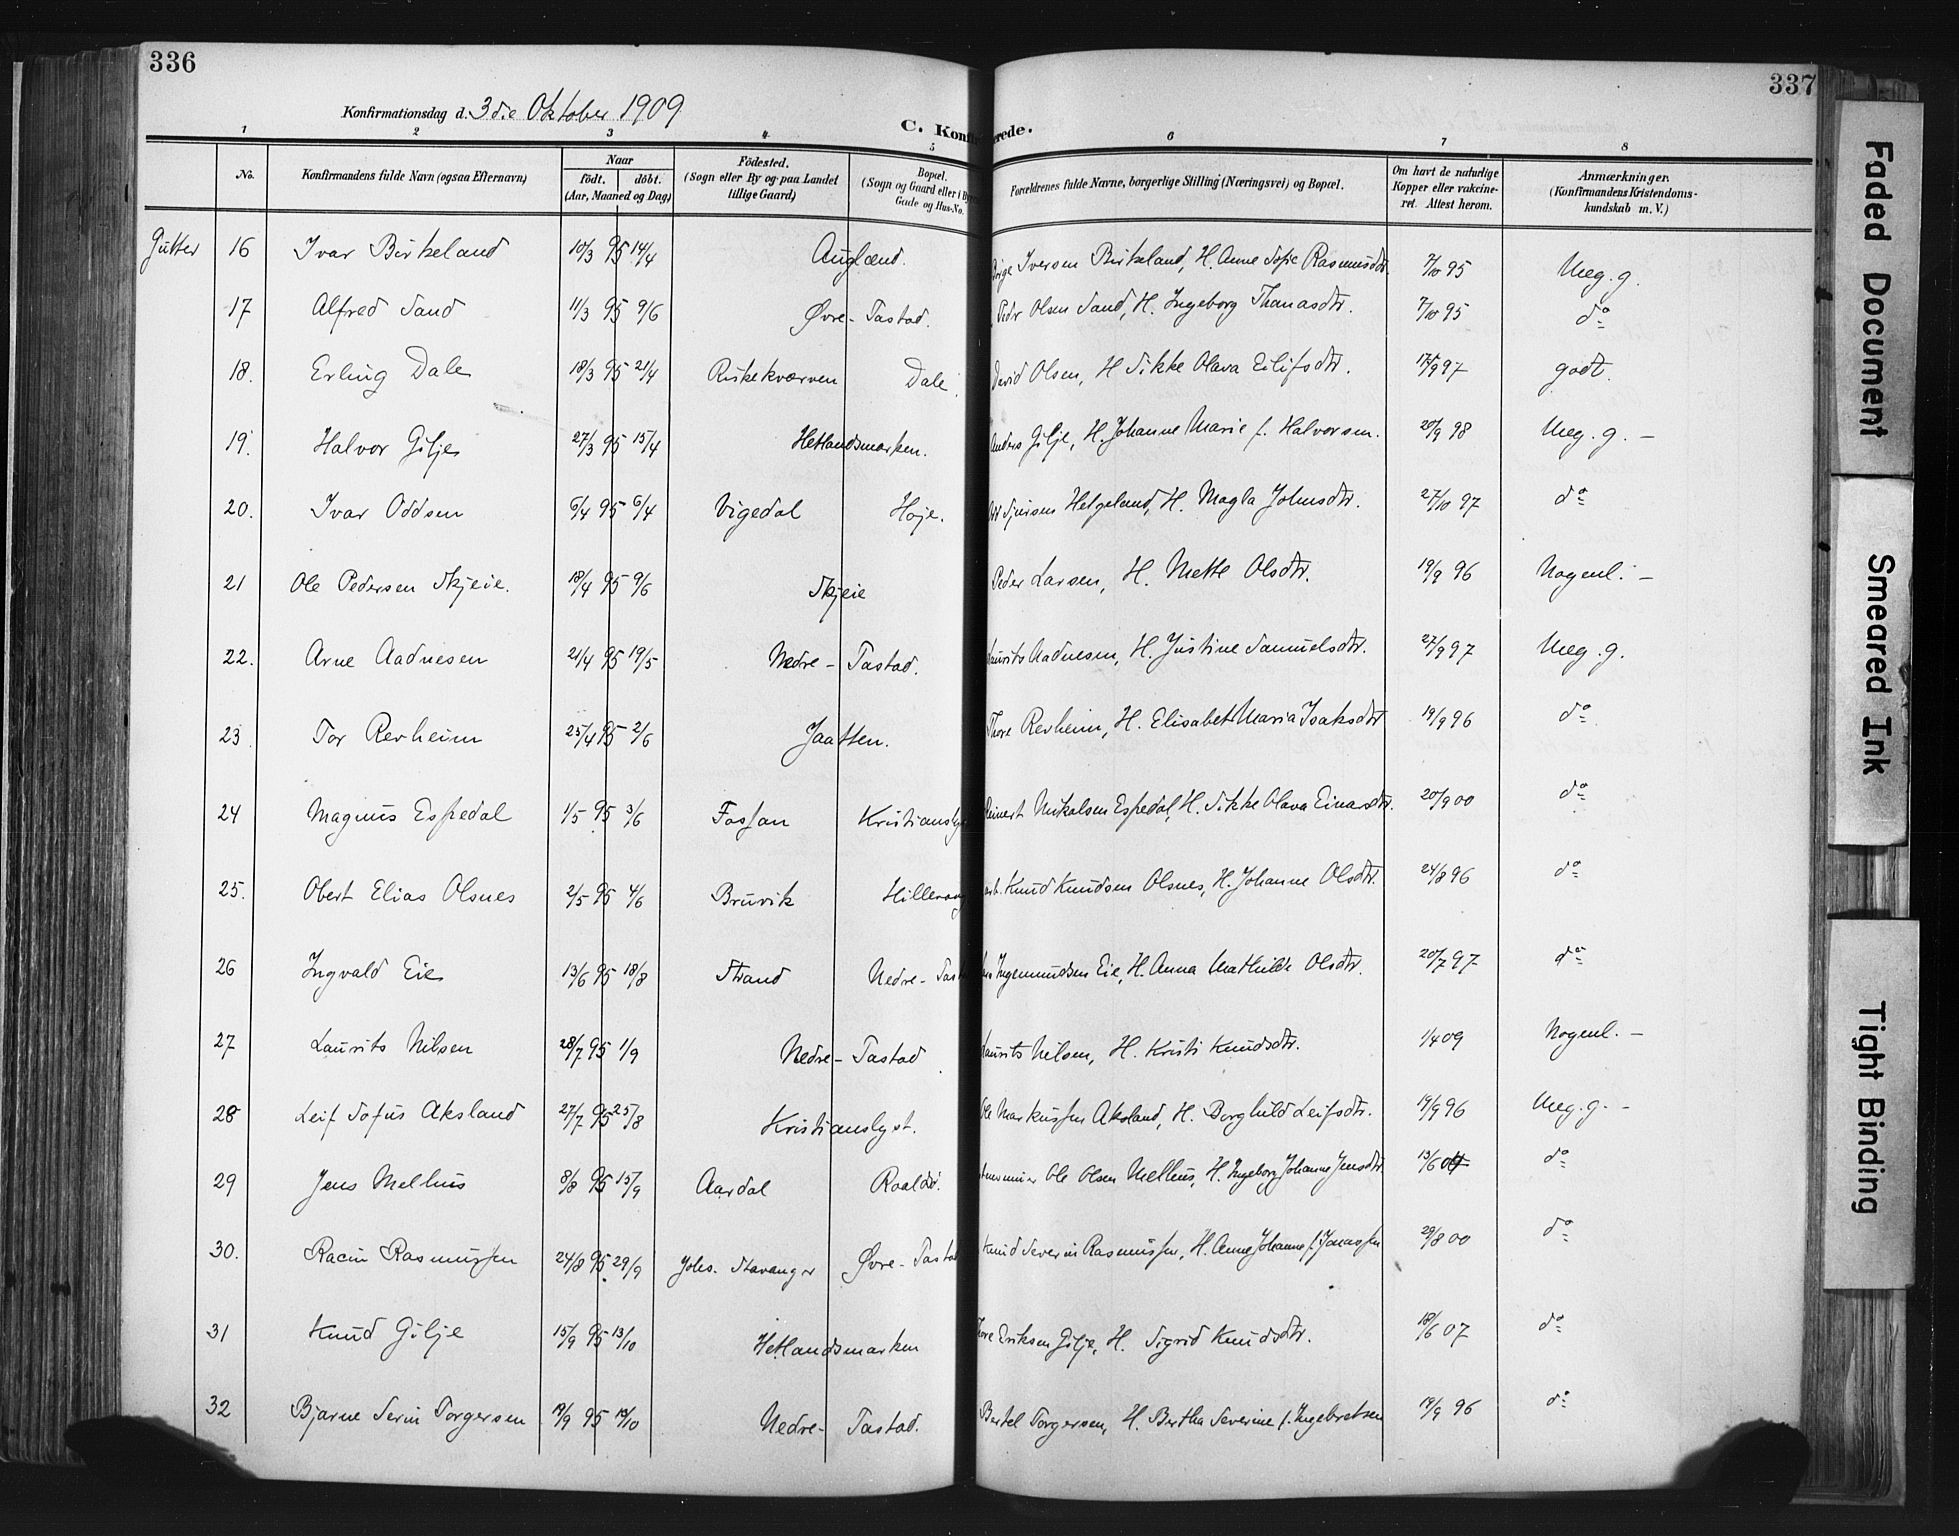 336
337
Konfirmationsdag d. 3die Oktober 1909
C. Konfirmerede.
1 2 3 4 5 6 7 8
No. Konfirmandens fulde Navn (ogsaa Efternavn) Naar født. døbt. (Aar, Maaned og Dag) Fødested. (Sogn eller By og paa Landet tillige Gaard) Bopæl. (Sogn og Gaard eller i By Gade og Hus-No. Forældrenes fulde Navne, borgerlige Stilling (Næringsvei) og Bopæl. Om havt de naturlige Kopper eller vakcineret. Attest herom. Anmærkninger. (Konfirmandens Kristendomskundskab m. V.)
Gutter 16 Ivar Birkeland 10/3 95 14/4 Auglend. Iversen Birkeland, H. Anne Sofie Rasmusdtr. 7/10 95 Meg. g.
17 Alfred Sand 11/3 95 9/6 Øvre-Tastad. Peder Olsen Sand, H. Ingeborg Thomasdtr. 7/10 95 do
18. Erling Dale 18/3 95 21/4 Riskekværven Dale. David Olsen, H. Sikke Olava Eilifsdtr. 17/9 97 godt.
19. Halvor Gilje 27/3 95 15/4 Hetlandsmarken. Anders Gilje, H. Johanne Marie f. Halvorsen. 20/9 98 Meg. g. –
20. Ivar Oddsen 6/4 95 6/4 Vigedal Høje. Helgeland, H. Magla Johnsdtr. 27/10 97 do
21 Ole Pedersen Skjeie. 18/4 95 9/6 Skjeie Peder Larsen, H. Mette Olsdtr. 19/9 96 Nogenl. –
22. Arne Aadnesen 21/4 95 19/5 Nedre-Tastad. Laurits Aadnesen, H. Justine Samuelsdtr. 27/9 97 Meg. g.
23. Tor Revheim 25/4 95 2/6 Jaatten. Thore Revheim, H. Elisabet Maria Isaksdtr 19/9 96 do
24 Magnus Espedal 1/5 95 3/6 Fossan Kristianslyst Reinert Nikolsen Espedal, H. Sikke Olava Einarsdtr. 20/9 00 do
25. Obert Elias Olsnes 2/5 95 4/6 Bruvik Hillevaag Knud Knudsen Olsnes, H. Johanne Olsdtr. 24/8 96 do
26 Ingvald Eie 13/6 95 18/8 Strand Nedre-Tastad Ingemundsen Eie, H. Anna Mathilde Olsdtr. 20/7 97 do
27 Laurits Nilsen 28/7 95 1/9 Nedre-Tastad Laurits Nilsen, H. Kristi Knudsdtr. 1/4 09 Nogenl. –
28 Leif Sofus Aksland 27/7 95 25/8 Kristianslyst. Ole Markussen Aksland, H. Borghild Leifsdtr. 19/9 96 Meg. g. –
29 Jens Melhus 8/8 95 15/9 Aardal Roaldsø. Ole Olsen Melhus, H. Ingeborg Johanne Jensdtr. 13/6 04 do
30. Racin Rasmussen 24/8 95 29/9 Johs. Stavanger Øvre-Tastad Knud Severin Rasmussen, H. Anne Johanne f. Jonassen 29/8 00 do
31 Knud Gilje 15/9 95 13/10 Hetlandsmarken Tore Eriksen Gilje, H. Sigrid Knudsdtr. 18/6 07 do
32 Bjarne Serin Torgersen 19/9 95 19/10 Nedre-Tastad. Bertel Torgersen, H. Bertha Severine f. Ingebretsen 19/9 96 do
Faded Document
Smeared Ink
Tight Binding